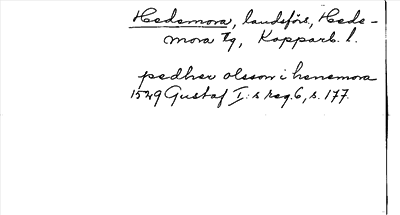 Hedemora, landsförs, Hede-
mora tg, Kopparb. l.
pedher olsson i henemora
1529 Gustaf I:s reg. 6, s. 177.